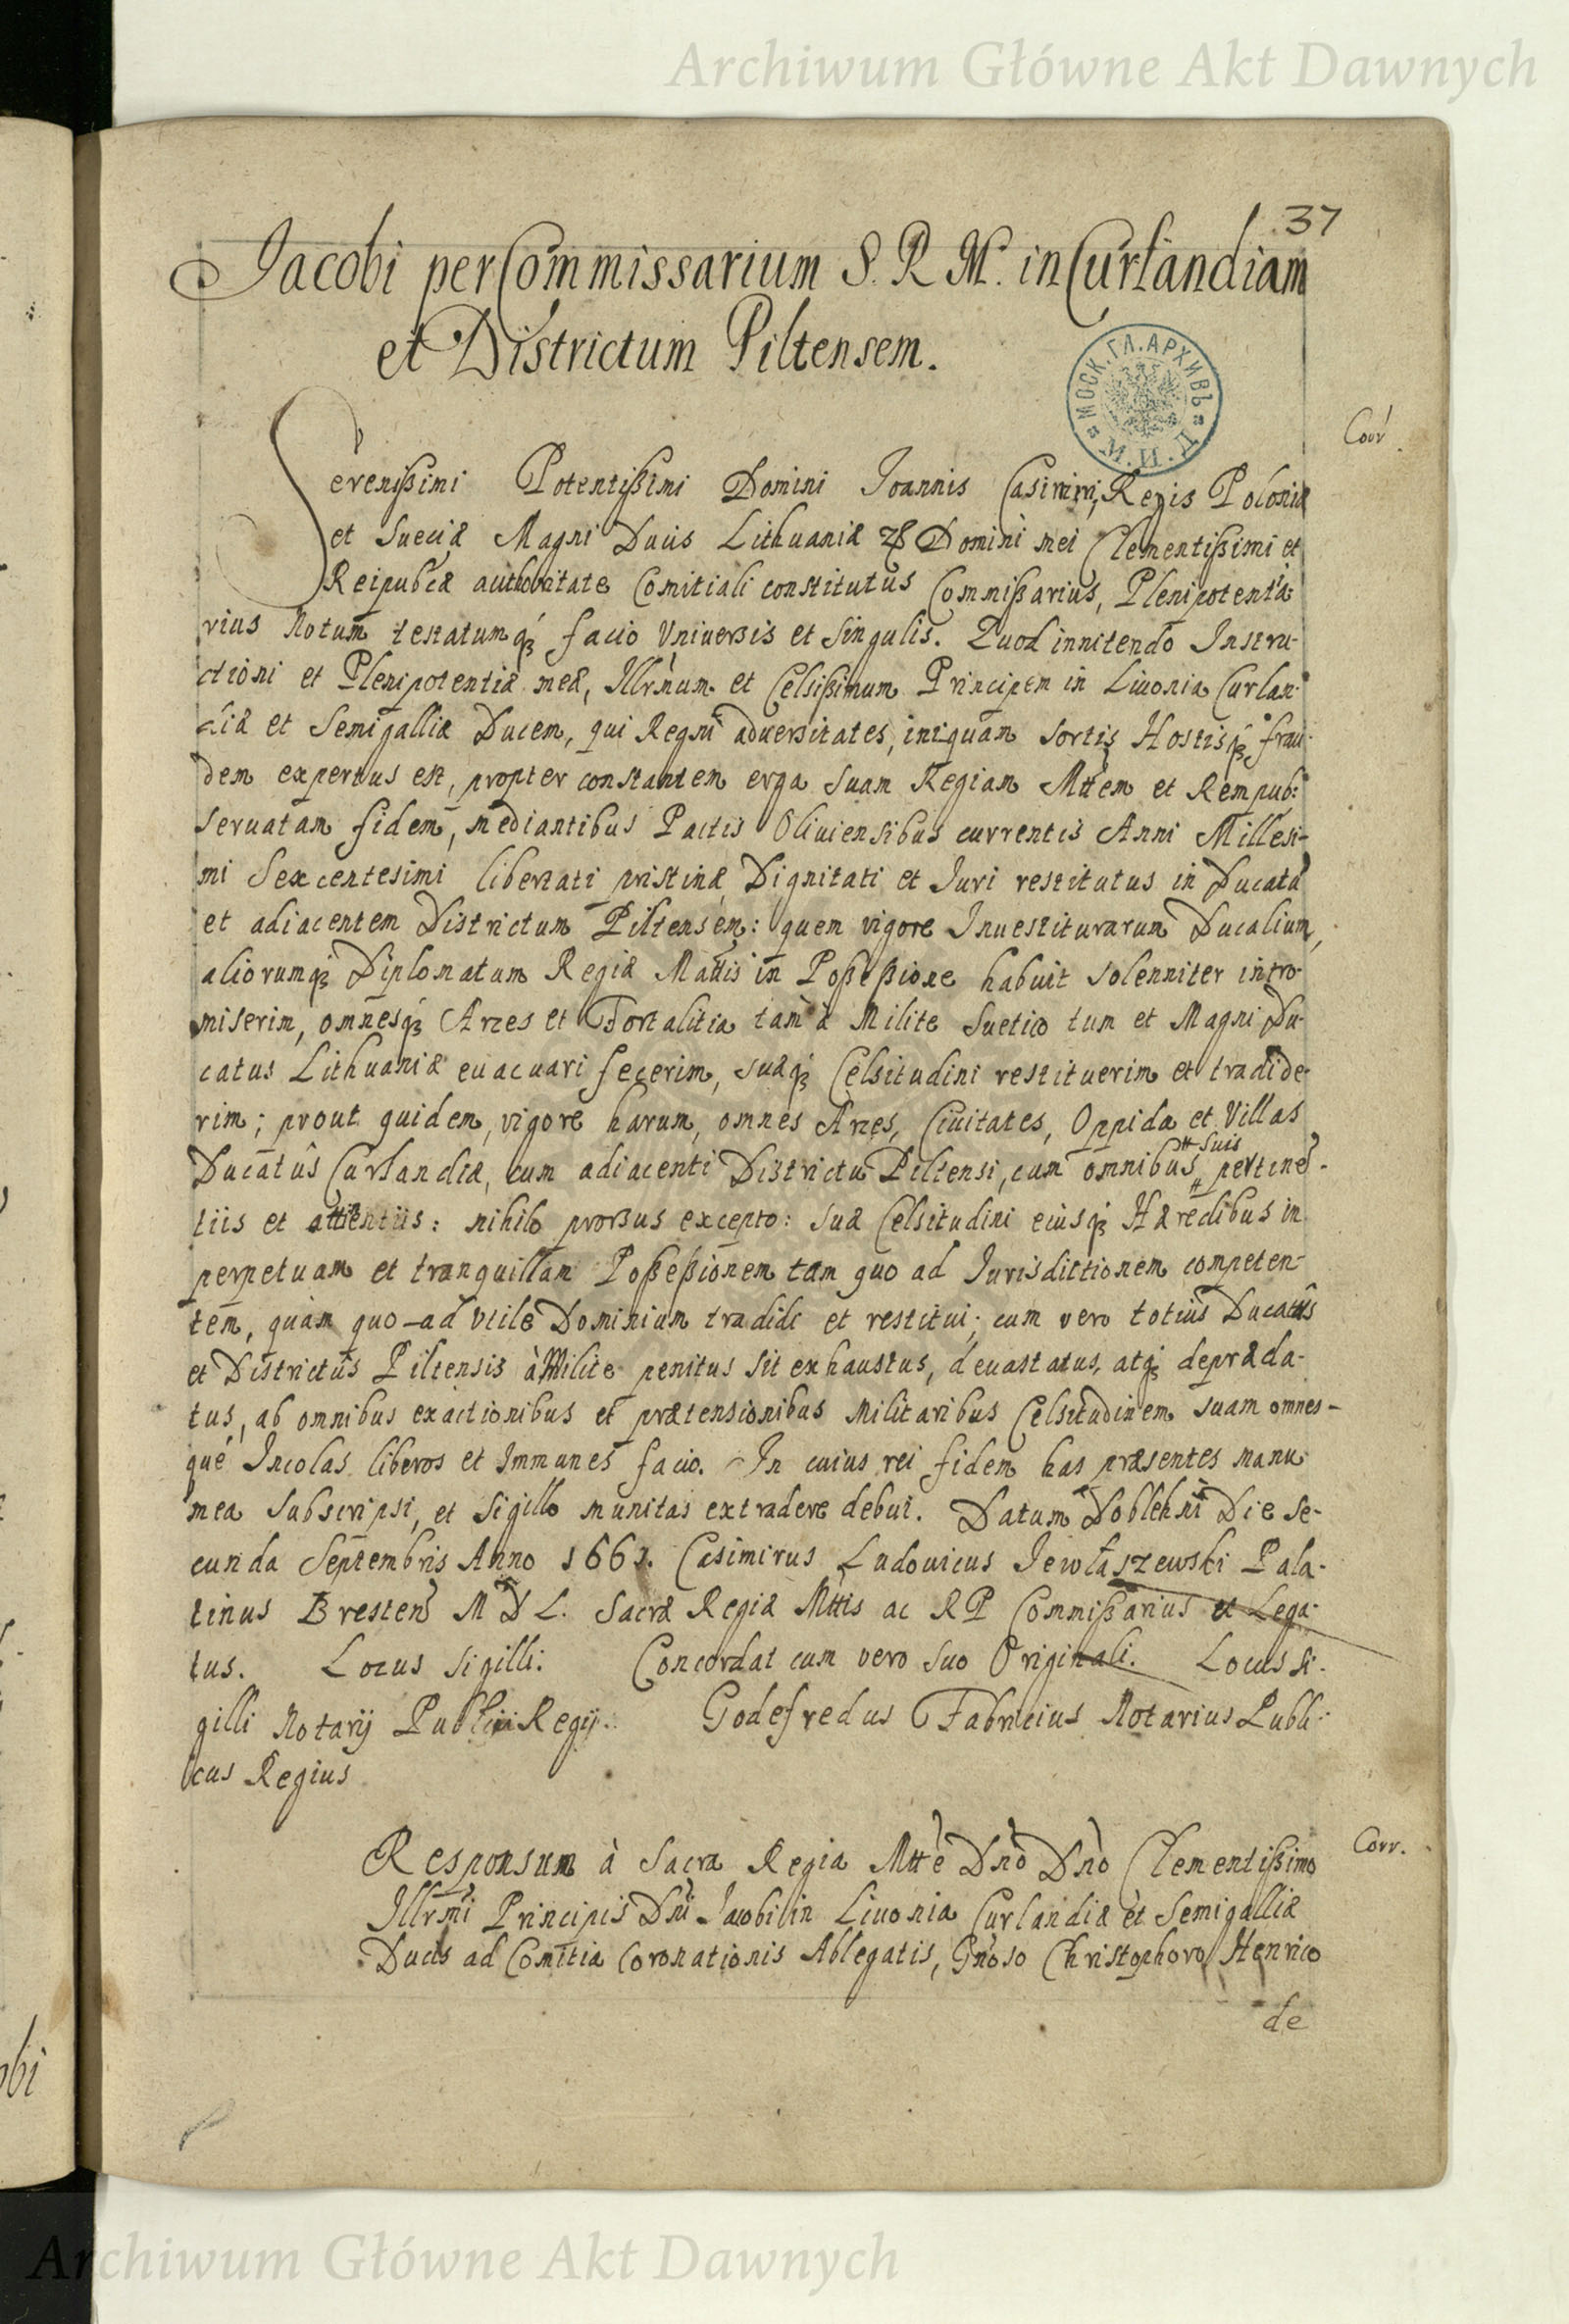 Archiwum Główne Akt Dawnych
37
Jacobi per Commissarium S. R. M. in Curlandiam
et Districtum Piltensem.
МОСК. ГЛ. АРХИВЪ
М. И. Д.
Corr.
Serenißimi Potentißimi Domini Joannis Casimiri, Regis Poloniæ
et Sueciæ Magni Ducis Lithuaniæ &c Domini mei Clementißimi et
Reipubcæ authoritate Comitiali constitutus Commißarius, Plenipotentia
rius Notum testatumq́ facio Vniuersis et Singulis. Quod innitendo Instru-
ctioni et Plenipotentiæ meæ, Illrm̃um et Celsißimum Principem in Liuonia Curlan-
diæ et Semigalliæ Ducem, qui Regni aduersitates, iniquam sortis Hostisq́ frau-
dem expertus est, propter constantem erga Suam Regiam Mttem et Rempub:
seruatam fidem, mediantibus Pactis Oliuiensibus currentis Anni Millesi-
mi Sexcentesimi libertati pristinæ Dignitati et Iuri restitutus in Ducatũ
et adiacentem Districtum Piltensem: quem vigore Inuestiturarum Ducalium,
aliorumq́ Diplomatum Regiæ Mattis in Poßeßione habuit solenniter intro-
miserim, omnesq́ Arces et Fortalitia tam à Milite Suetico tum et Magni Du-
catus Lithuaniæ euacuari fecerim, suæq́ Celsitudini restituerim et tradide-
rim; prout quidem, vigore harum, omnes Arces, Ciuitates, Oppida et Villas
Ducatûs Curlandiæ, cum adiacenti Districtu Piltensi, cum omnibus suis pertinẽ-
tiis et attinentiis: nihilo prorsus excepto: suæ Celsitudini eiusq́ Hæredibus in
perpetuam et tranquillam Poßeßionem tam quo ad Iurisdictionem competen-
tem, quàm quo-ad vtile Dominium tradidi et restitui; cum vero totius Ducatûs
et Districtus Piltensis à Milite penitus sit exhaustus, deuastatus, atq́ depræda-
tus, ab omnibus exactionibus et prætensionibus Militaribus Celsitudinem suam omnes-
que Incolas liberos et Immunes facio. In cuius rei fidem has præsentes manu
mea subscripsi, et Sigillo munitas extradere debui. Datum Doblehni Die Se-
cunda Septembris Anno 1661. Casimirus Ludouicus Jewłaszewski Pala-
tinus Brestens M D L. Sacræ Regiæ Mttis ac RP Commißarius et Lega-
tus. Locus Sigilli. Concordat cum vero suo Originali. Locus si-
gilli Notarij Publici Regij. Godefredus Fabricius Notarius Publi-
cus Regius
Corr.
Responsum à Sacra Regia Mtte Dño Dño Clementißimo
Illrmi Principis Dñi Jacobi in Liuonia Curlandiæ et Semigalliæ
Ducis ad Comitia Coronationis Ablegatis, Gñoso Christophoro Henrico
de
obi
Archiwum Główne Akt Dawnych